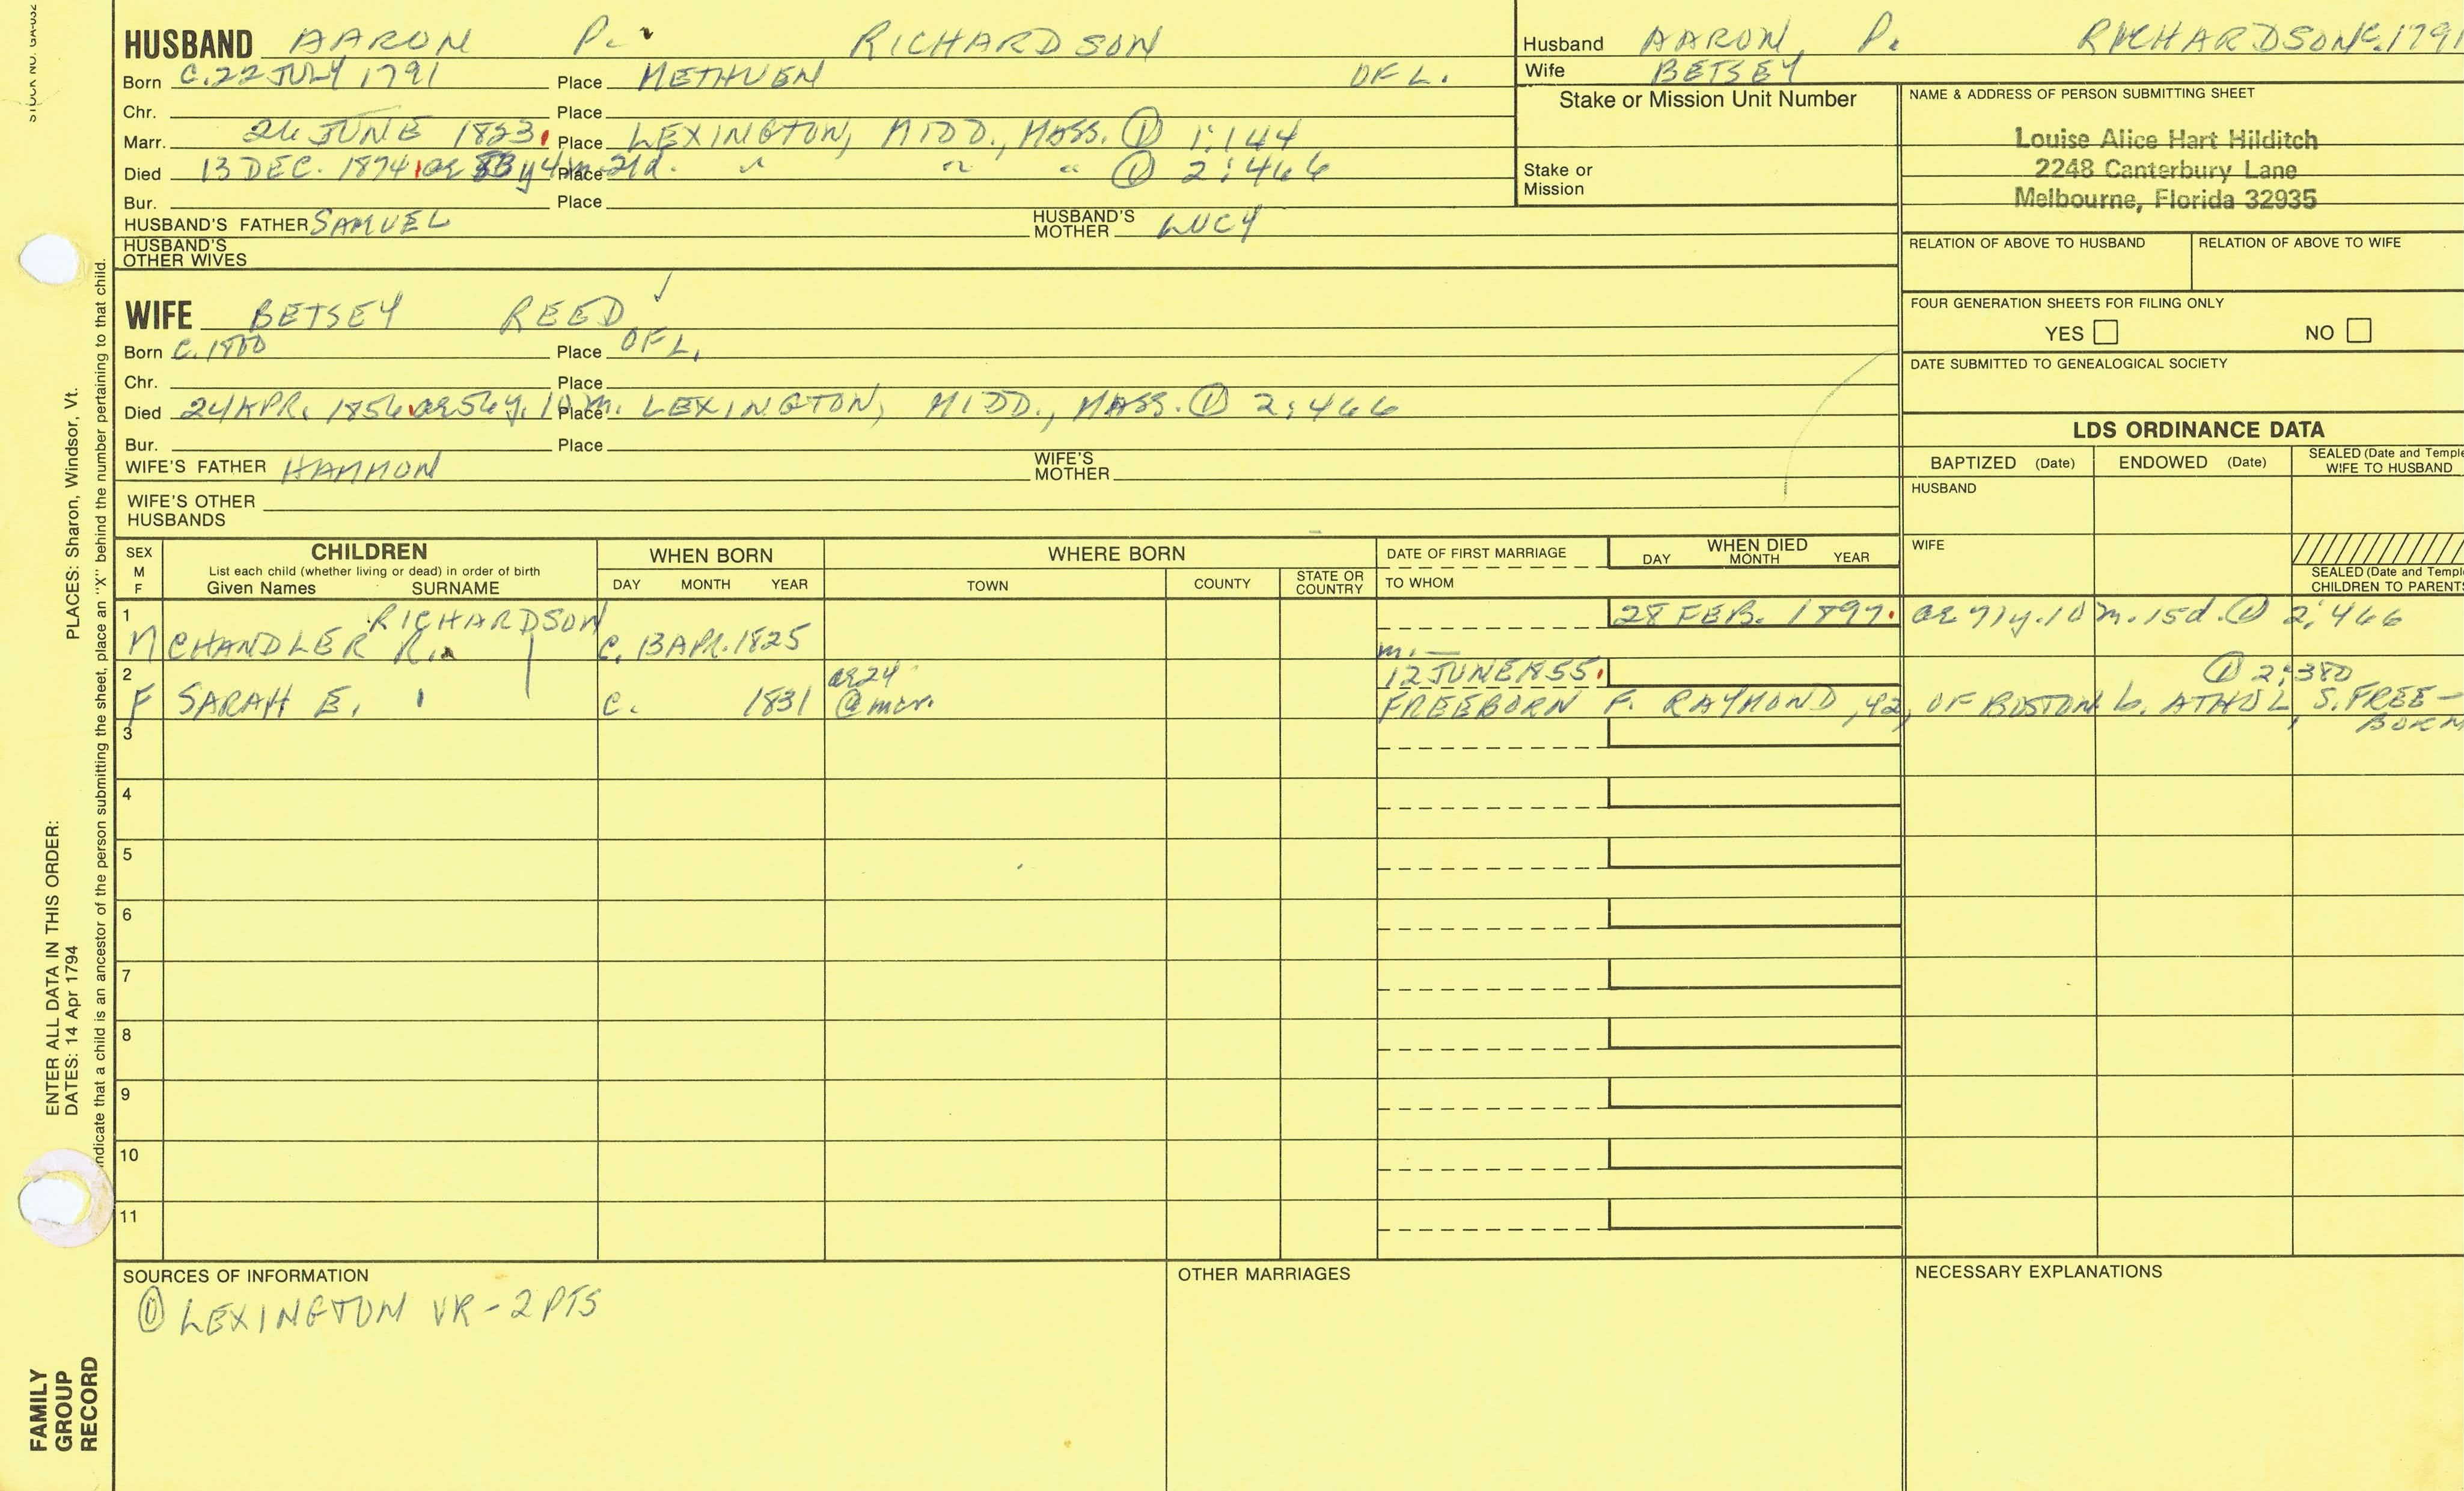 STOCK NO. GA-032
HUSBAND AARON P. RICHARDSON
Born C. 22 JULY 1791 Place METHUEN OF L.
Chr. Place
Marr. 26 JUNE 1823. Place LEXINGTON, MIDD., MASS. ① 1:144
Died 13 DEC. 1874 ae 83 y 4 m. 21d. Place " " " ① 2:466
Bur. Place
HUSBAND'S FATHER SAMUEL HUSBAND'S MOTHER LUCY
HUSBAND'S OTHER WIVES
Husband AARON, P. RICHARDSON C. 1791
Wife BETSEY
Stake or Mission Unit Number
Stake or Mission
NAME & ADDRESS OF PERSON SUBMITTING SHEET
Louise Alice Hart Hilditch
2248 Canterbury Lane
Melbourne, Florida 32935
RELATION OF ABOVE TO HUSBAND RELATION OF ABOVE TO WIFE
FOUR GENERATION SHEETS FOR FILING ONLY
YES NO
DATE SUBMITTED TO GENEALOGICAL SOCIETY
WIFE BETSEY REED
Born C. 1800 Place OF L.
Chr. Place
Died 24 APR. 1856 ae 56 y. 10 m. Place LEXINGTON, MIDD., MASS. ① 2:466
Bur. Place
WIFE'S FATHER HAMMON WIFE'S MOTHER
WIFE'S OTHER HUSBANDS
LDS ORDINANCE DATA
BAPTIZED (Date) ENDOWED (Date) SEALED (Date and Temple
WIFE TO HUSBAND
HUSBAND
WIFE
SEALED (Date and Templ
CHILDREN TO PARENTS
SEX M F
CHILDREN
List each child (whether living or dead) in order of birth
Given Names SURNAME
WHEN BORN
DAY MONTH YEAR
WHERE BORN
TOWN COUNTY STATE OR COUNTRY
DATE OF FIRST MARRIAGE
TO WHOM
WHEN DIED
DAY MONTH YEAR
1 RICHARDSON 28 FEB. 1897. ae 71 y. 10 m. 15 d. ① 2:466
M CHANDLER R. C. 13 APR. 1825 m. —
2 ae 24 12 JUNE 1855. ① 2:380
F SARAH E. C. 1831 @ mar. FREEBORN F. RAYMOND, 42, OF BOSTON b. ATHOL, S. FREE-
BORN
3
4
5
6
7
8
9
10
11
SOURCES OF INFORMATION
① LEXINGTON VR - 2 PTS
OTHER MARRIAGES
NECESSARY EXPLANATIONS
ENTER ALL DATA IN THIS ORDER:
DATES: 14 Apr 1794 PLACES: Sharon, Windsor, Vt.
indicate that a child is an ancestor of the person submitting the sheet, place an "X" behind the number pertaining to that child.
FAMILY
GROUP
RECORD